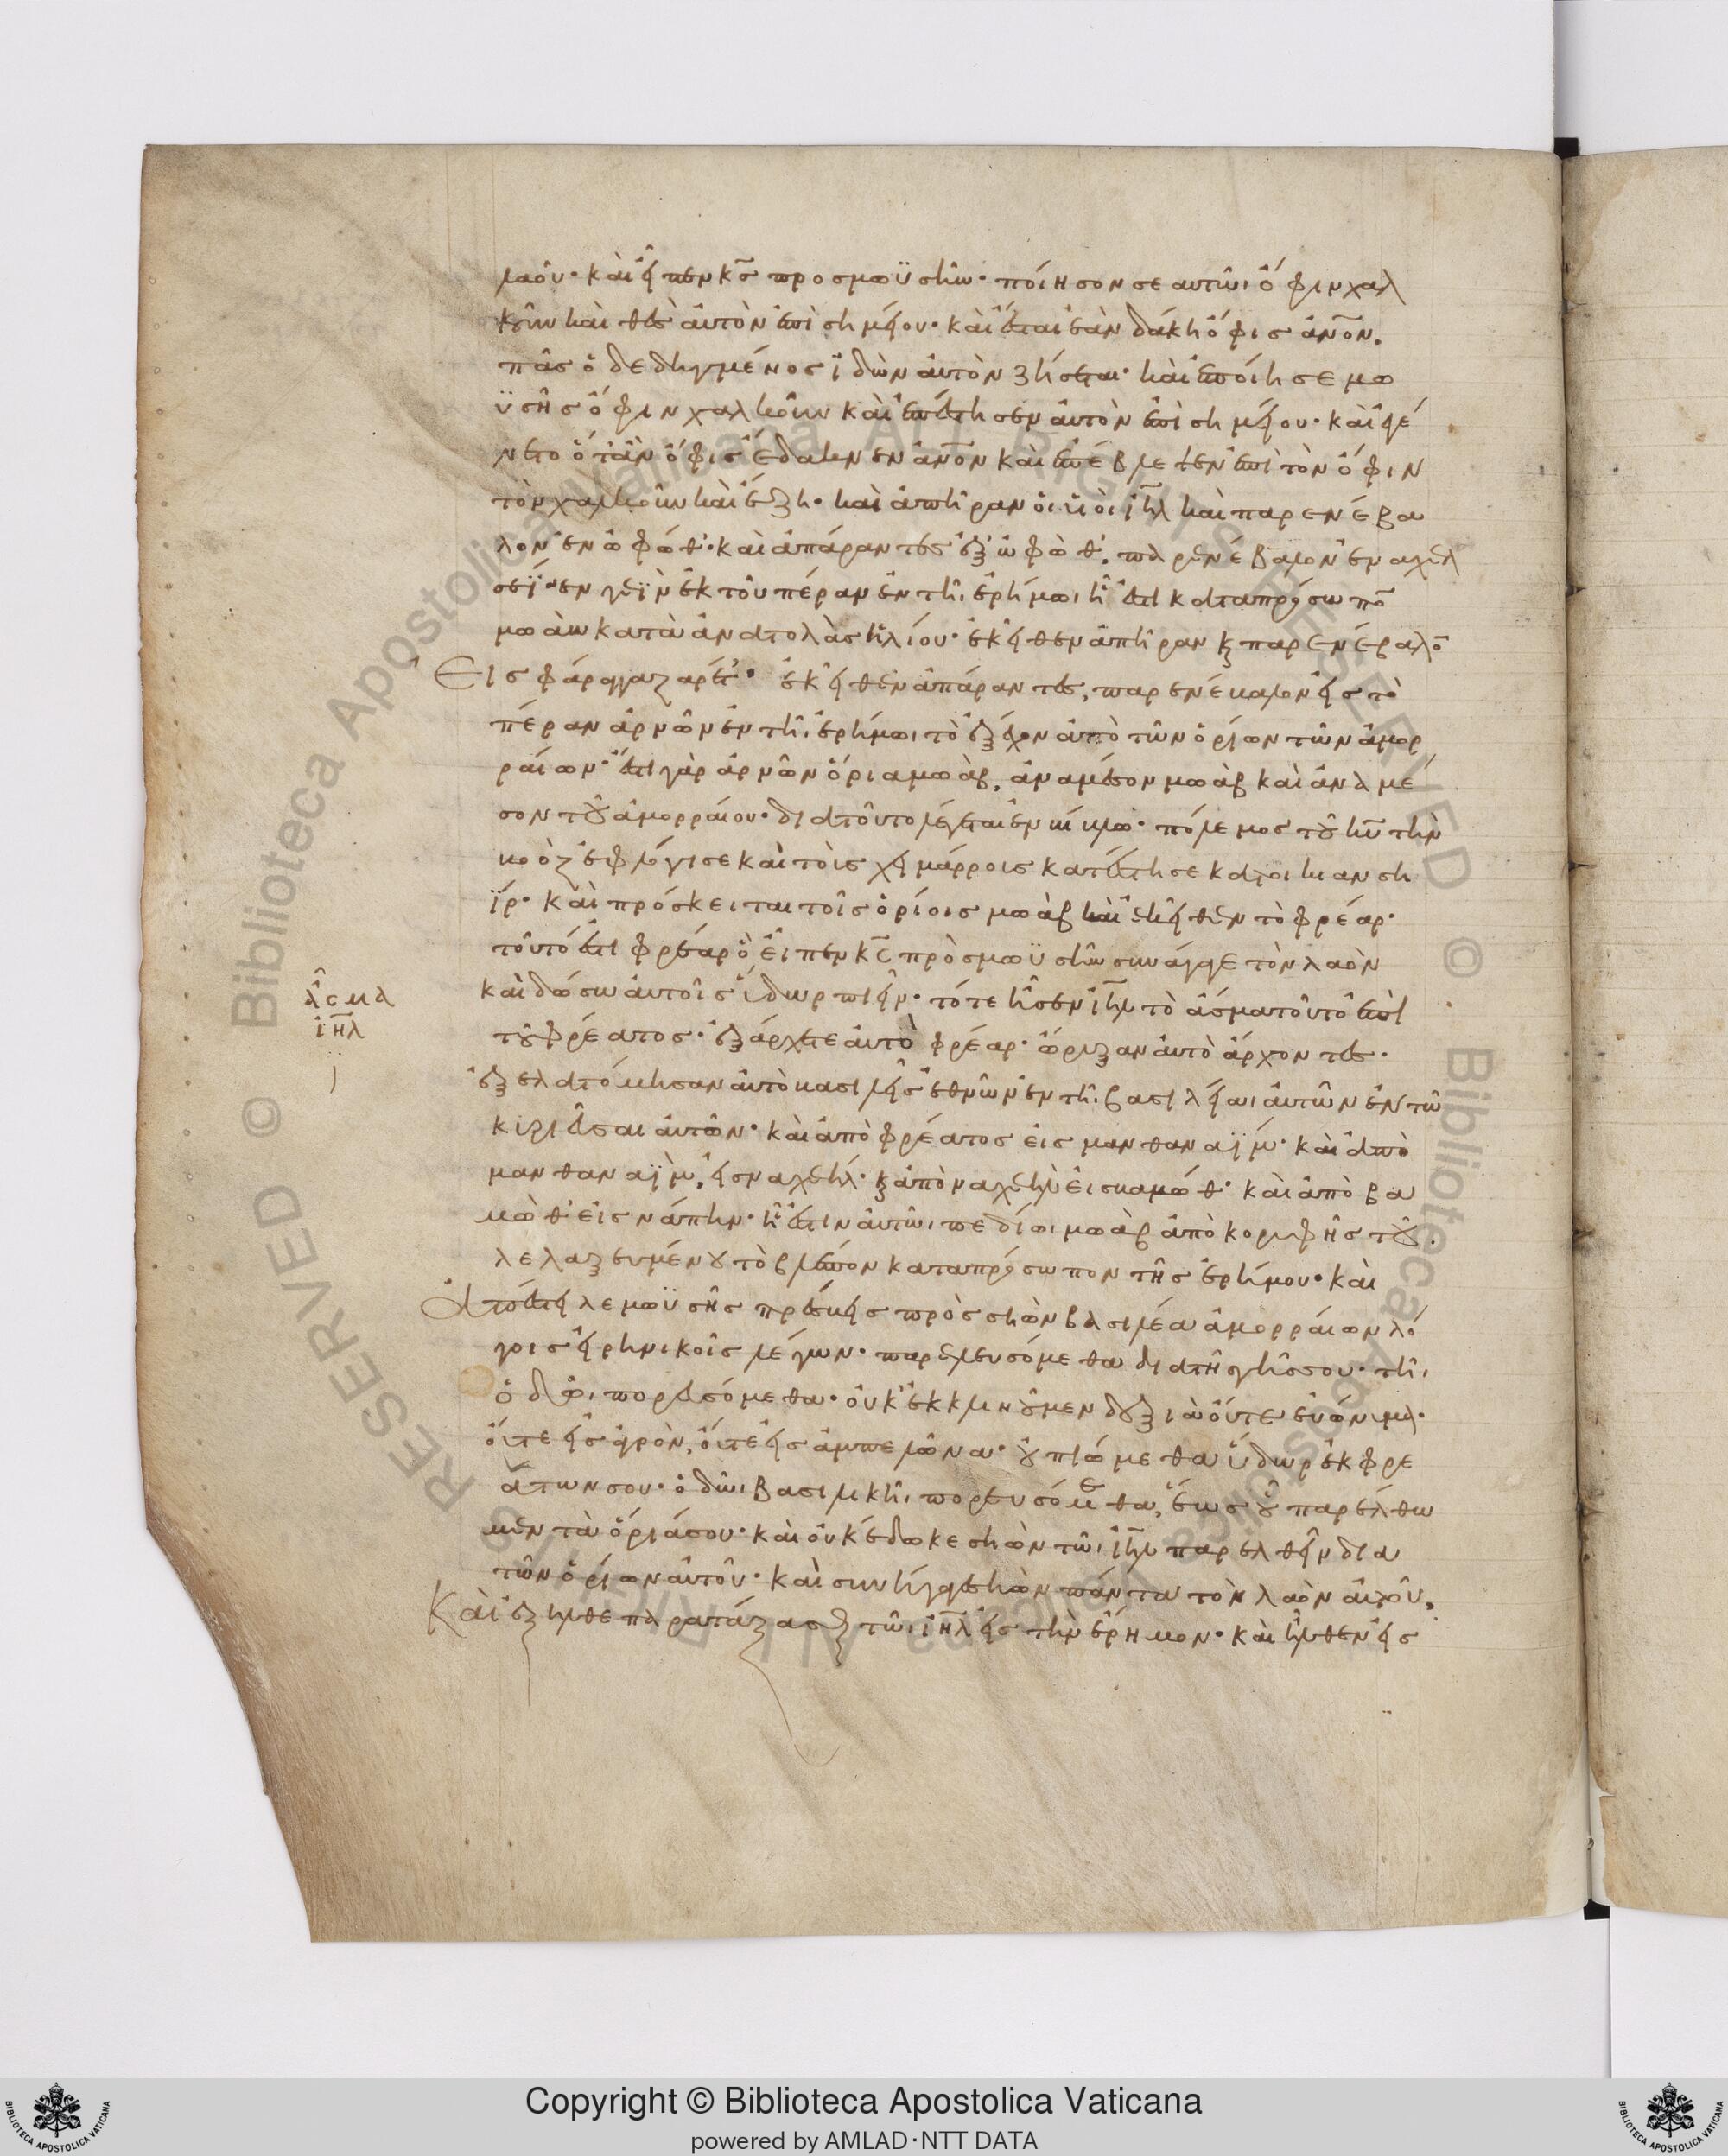 λαοῦ· καὶ εἶπεν κ̅ς̅ προς μωϋσῆν· ποίησον σεαυτῶι ὄφιν χαλ
κοῦν καὶ θὲς αὐτὸν ἐπὶ σημείου· καὶ ἔσται ἐὰν δάκη ὄφις ἄν̅ον̅.
πᾶς ὁ δεδηγμένος ἰδὼν αὐτὸν ζήσεται· καὶ ἐποίησε μω
ϋσῆς ὄφιν χαλκοῦν καὶ ἔστησεν αὐτὸν ἐπὶ σημείου· καὶ ἐγέ
νετο ὅταν ὄφις ἔδακεν ἄν̅ον̅ καὶ ἐπέβλεψεν ἐπὶ τὸν ὄφιν
τὸν χαλκοῦν καὶ ἔζη· καὶ ἀπῆραν οἱ υἱοὶ ι̅η̅λ̅ καὶ παρενέβα
λον ἐν ὠφώθ· καὶ ἀπάραντες ἐξ ὠφώθ· παρενέβαλον ἐν αχελ
γαεὶ ἐκ τοῦ πέραν ἐν τῆι ἐρήμωι ἥ ἐστι κατα πρόσωπο̅
μωὰβ κατὰ ἀνατολὰς ἡλίου· ἐκεῖθεν ἀπῆραν κ̀ παρενέβαλο̅
Εἰς φάραγγα ζαρέτ· ἐκεῖθεν ἀπάραντες, παρενέβαλον εἰς τὸ
πέραν ἀρνῶν ἐν τῆι ἐρήμωι τὸ ἐξέχον ἀπὸ τῶν ὁρίων τῶν ἀμορ
ραίων· ἔστι γὰρ ἀρνῶν ὅρια μωὰβ, ἀναμέσον μωὰβ καὶ ἀνα μέ
σον τοῦ ἀμορραίου· διατοῦτο λέγεται ἐν βίβλω· πόλεμος τοῦ κ̅υ̅ τὴν
ζωὸβ ἐφλόγισε καὶ τοὺς χειμάρρους ἀρνῶν· καὶ τοὺς χειμάρρους κατέστησε κατοικίσαι
ἤρ· καὶ πρόσκειται τοῖς ὁρίοις μωὰβ καὶ ἐκεῖθεν τὸ φρέαρ·
τοῦτό ἐστι φρέαρ ὃ εἶπεν κ̅ς̅ πρὸς μωϋσῆν συνάγαγε τὸν λαὸν
καὶ δώσω αὐτοῖς ὕδωρ πιεῖν· τότε ἦσεν ι̅η̅λ̅ τὸ ἆσμα τοῦτο ἐπὶ
τοῦ φρέατος· ἐξάρχετε αὐτὸ φρέαρ· ὤρυξαν αὐτὸ ἄρχοντες·
ἐξελατόμησαν αὐτὸ βασιλεῖς ἐθνῶν ἐν τῆι βασιλείαι αὐτῶν ἐν τῶ
κυριεῦσαι αὐτῶν· καὶ ἀπὸ φρέατος εἰς μανθαναϊμ· καὶ ἀπὸ
μανθαναϊμ, εἰς ναχαιήλ· κ̀ ἀπὸ ναχαιὴλ εἰς βαμώθ· καὶ ἀπὸ βα
μὼθ εἰς νάπην· ἥ ἐστιν ἐν τῶι πεδίωι μωὰβ ἀπὸ κορυφῆς τοῦ
λελαξευμένου τὸ βλέπον κατα πρόσωπον τῆς ἐρήμου· καὶ
Ἀπέστειλε μωϋσῆς πρέσβεις πρὸς σηὼν βασιλέα ἀμορραίων λό
γοις εἰρηνικοῖς λέγων· παρελευσόμεθα διὰ τῆς γῆς σου· τῆι
ὁδῶι πορευσόμεθα· οὐκ ἐκκλινοῦμεν δεξιὰ οὔτε εὐώνυμα·
οὔτε εἰς ἀγρὸν, οὔτε εἰς ἀμπελῶνα· οὐ πιόμεθα ὕδωρ ἐκ φρέ
ατων σου· ὁδῶι βασιλικῆι πορευσόμεθα, ἕως οὗ παρέλθω
μεν τὰ ὅριά σου· καὶ οὐκ ἔδωκε σηὼν τῶι ι̅η̅λ̅ παρελθεῖν διὰ
τῶν ὁρίων αὐτοῦ· καὶ συνήγαγε σηὼν πάντα τὸν λαὸν αὐτοῦ,
Καὶ ἐξῆλθε παρατάξασθαι τῶι ι̅η̅λ̅ εἰς τὴν ἔρημον· καὶ ἦλθεν εἰς
ἆσμα
ι̅η̅λ̅
© Biblioteca Apostolica Vaticana ALL RIGHTS RESERVED
© Biblioteca Apostolica Vaticana ALL RIGHTS RESERVED
Copyright © Biblioteca Apostolica Vaticana
powered by AMLAD·NTT DATA
BIBLIOTECA APOSTOLICA VATICANA
BIBLIOTECA APOSTOLICA VATICANA